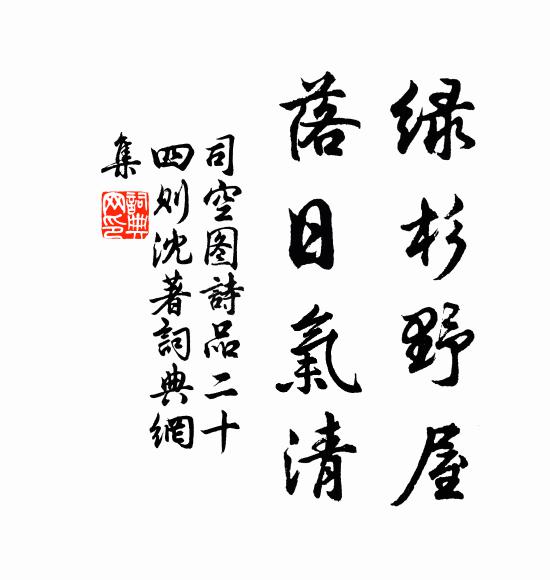 绿杉野屋
落日氣清
司空图詩品二十
四则沈著詞典網
集
詞典
网印